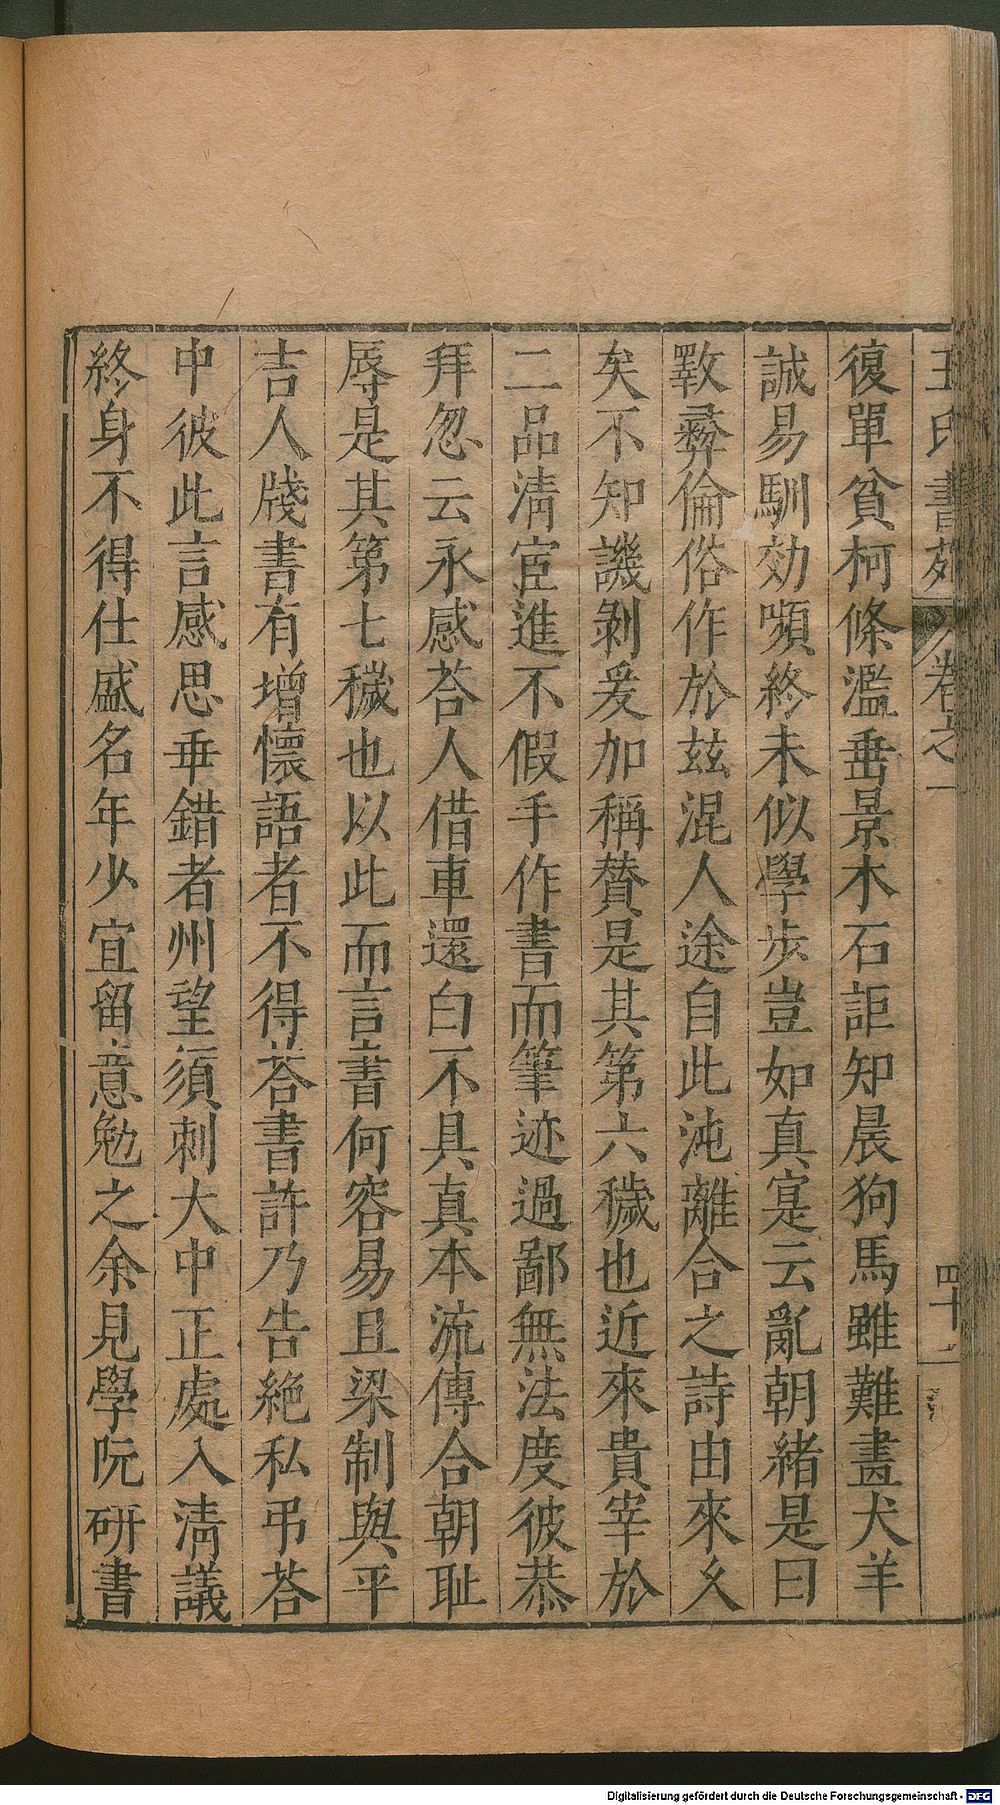 王氏書苑 卷之一 四十
復單貧柯條濫垂景木石詎知晨狗馬雖難畫犬羊
誠易馴効嚬終未似學步豈如真寔云亂朝緒是曰
斁彝倫俗作於玆混人途自此沌離合之詩由來久
矣不知譏剝爰加稱賛是其第六穢也近來貴宰於
二品清宦進不假手作書而筆迹過鄙無法度彼恭
拜忽云永感荅人借車還白不具真本流傳合朝耻
辱是其第七穢也以此而言書何容易且梁制與平
吉人牋書有增懷語者不得荅書許乃告絶私弔荅
中彼此言感思乖錯者州望須刺大中正處入清議
終身不得仕盛名年少宜留意勉之余見學阮研書
Digitalisierung gefördert durch die Deutsche Forschungsgemeinschaft - DFG